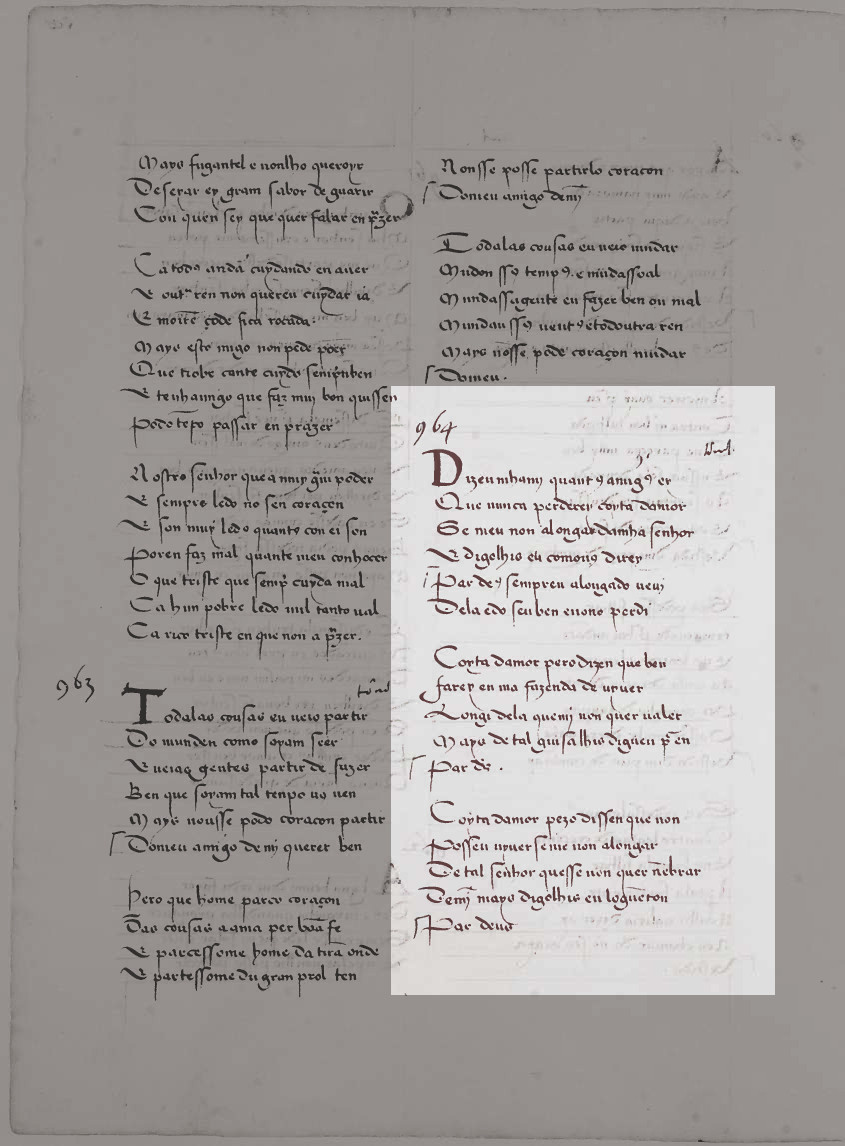 Mays fugantel e nonlho queroyr
Desexar ey gram sabor de guarir
Con quen sey que quer falar en pʳzer
Ca todꝯ andã cuydando en aver
E outᵃ ren non quereu cuydar ia
E morrẽ çede fica
Mays esto migo non pede poer
Que trobe cante cuydo sempʳ en ben
E tenhamigo que faz mui bon quissen
Podo tẽpo passar en prazer
Nostro senhor que a mui gʳm poder
E sempre ledo no seu coraçon
E son muy ledo quantꝯ con el son
Poren faz mal quante meu conhocer
O que triste que sempʳ cuyda mal
Ca hun pobre ledo mil tanto ual
Ca rico triste en que non a pʳzer.
963
Todalas cousas eu ueio partir
Do munden como soyam seer
E ueiaꝯ gentes partir de fazer
Ben que soyam tal tenpo uꝯ uen
Mays nonsse podo coraçon partir
Domeu amigo de mj querer ben
Pero que home parte coraçon
Das cousas a ama per bõa fe
E parcessome home da tirã onde
E partessome du gran prol ten
Nonsse posse partirlo coraçon
Domeu amigo demj
Todalas cousas eu ueio mudar
Mudon ssꝯ tempꝯ. e mudassoal
Mudassagente eu fazer ben ou mal
Mudan ssꝯ uentꝯ etodoutra ren
Mays nõsse pode coraçon mudar
Domeu.
964
Dizeu mhamj quantꝯ amigꝯ er
Que nunca perderey coyta damor
Se meu non alongar damha senhor
E digolhis eu comouꝯ direy
Par deꝯ sempreu alongado ueuj
Dela edo seu ben euono perdi
Coyta damor pero dizen que ben
farey en ma fazenda de uyuer
Longi dela quemj non quer ualer
Mays de tal guisa lhis digueu pʳ en
Par dꝯ.
Coyta damor pero dissen que non
Posseu uyuer seme non alongar
De tal senhor quesse non quer nẽbrar
Demj mays digolhis eu loguẽton
Par deus